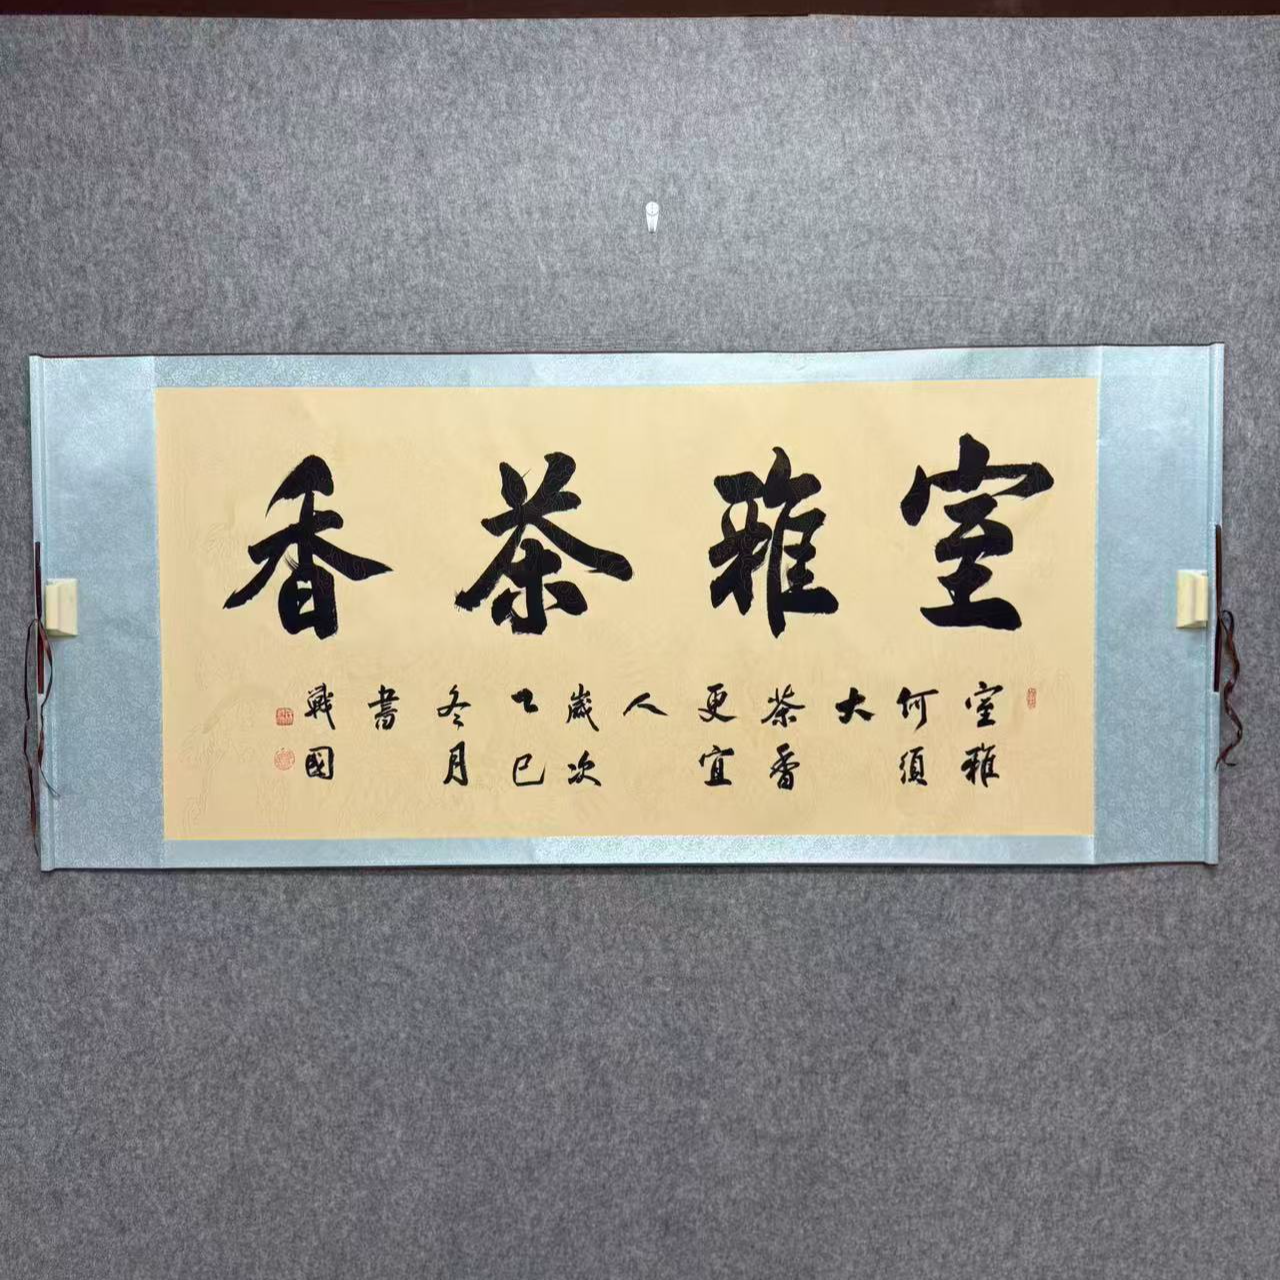 室雅茶香
室雅
何須
大
茶香
更宜
人
歲次
乙巳
冬月
書
戰國